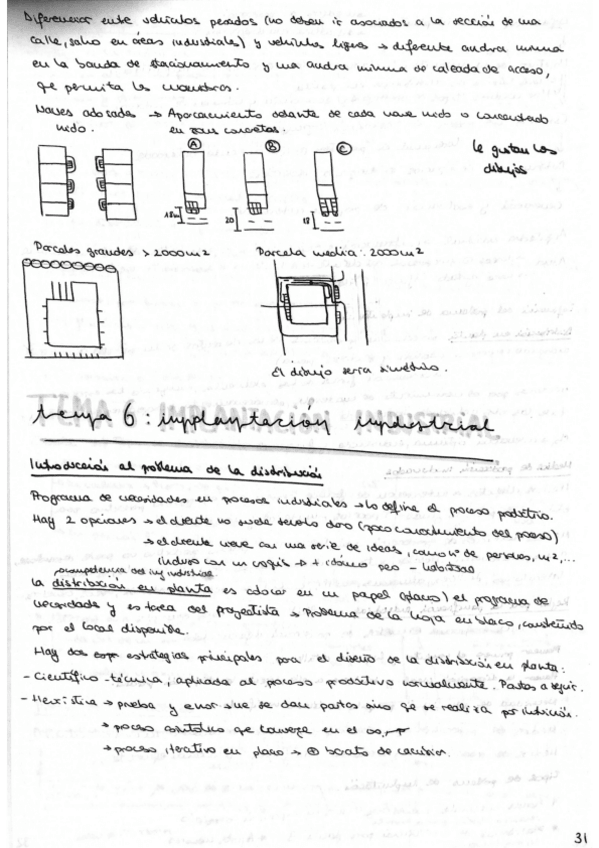 Diferenciar entre vehículos pesados (no deben ir asociados a la sección de una
calle, salvo en áreas industriales) y vehículos ligeros → diferente anchura mínima
en la banda de estacionamiento y una anchura mínima de calzada de acceso,
que permita las maniobras.
Naves adosadas → Aparcamiento delante de cada nave nido o concentrado
nido. en zonas concretas.
A B C
le gustan los
dibujos
18m 20 18
Parcelas grandes > 2000m2 Parcela media: 2000m2
El dibujo sería simétrico.
tema 6: implantación industrial
Introducción al problema de la distribución
Programa de necesidades en procesos industriales → lo define el proceso productivo.
Hay 2 opciones → el cliente no suele tenerlo claro (poco conocimiento del proceso)
→ el cliente viene con una serie de ideas, como nº de personas, m2,...
incluso con un croquis → + cómodo pero - habitual
competencia del ing industrial
La distribución en planta es colocar en un papel (plano) el programa de
necesidades y es tarea del proyectista → Problema de la hoja en blanco, construido
por el local disponible.
Hay dos estrategias principales para el diseño de la distribución en planta:
- Científico-técnica, aplicada al proceso productivo normalmente. Pautas a seguir.
- Heurística → prueba y error que se dan pautas sino que se realiza por intuición.
→ proceso asintótico que converge en el ∞,
→ proceso iterativo en plano → barato de cambiar.
31